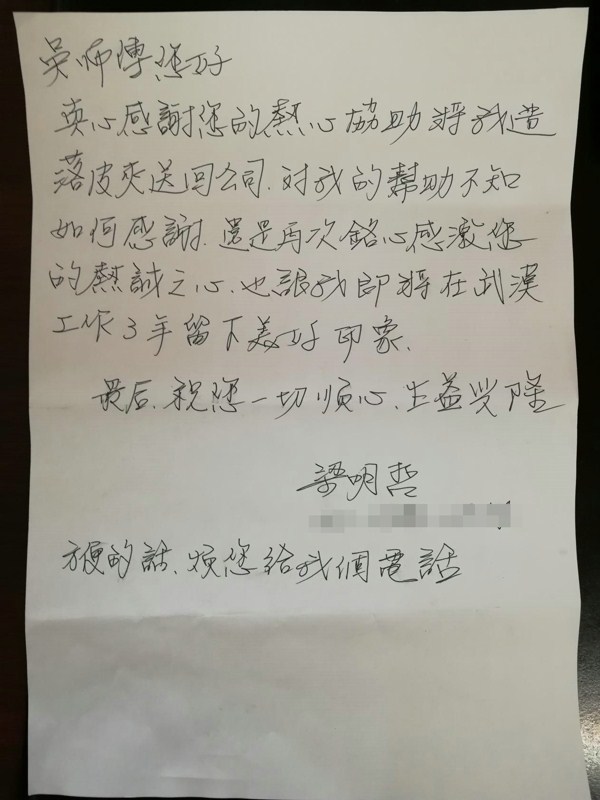 吳師傅您好
真心感謝您的熱心協助將我遺
落皮夾送回公司.對我的幫助不知
如何感謝.還是再次銘心感激您
的熱誠之心.也讓我即將在武漢
工作3年留下美好印象.
最后.祝您一切順心.生益兴隆
梁明哲
方便的話.煩您給我個電話